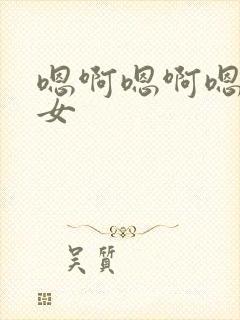 嗯啊嗯啊嗯
女
吴质